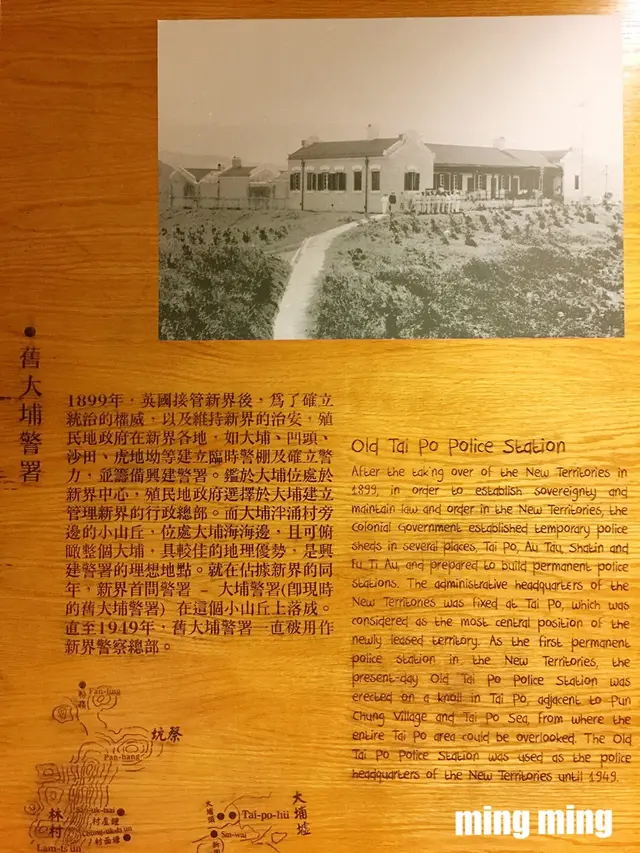 舊大埔警署
1899年，英國接管新界後，為了確立
統治的權威，以及維持新界的治安，殖
民地政府在新界各地，如大埔、凹頭、
沙田、虎地坳等建立臨時警棚及確立警
力，並籌備興建警署。鑑於大埔位處於
新界中心，殖民地政府選擇於大埔建立
管理新界的行政總部。而大埔泮涌村旁
邊的小山丘，位處大埔海海邊，且可俯
瞰整個大埔，具較佳的地理優勢，是興
建警署的理想地點。就在佔據新界的同
年，新界首間警署 – 大埔警署(即現時
的舊大埔警署) 在這個小山丘上落成。
直至1949年，舊大埔警署一直被用作
新界警察總部。
Old Tai Po Police Station
After the taking over of the New Territories in
1899, in order to establish sovereignty and
maintain law and order in the New Territories, the
Colonial Government established temporary police
sheds in several places, Tai Po, Au Tau, Shatin and
Fu Ti Au, and prepared to build permanent police
stations. The administrative headquarters of the
New Territories was fixed at Tai Po, which was
considered as the most central position of the
newly leased territory. As the first permanent
police station in the New Territories, the
present-day Old Tai Po Police Station was
erected on a knoll in Tai Po, adjacent to Pun
Chung Village and Tai Po Sea, from where the
entire Tai Po area could be overlooked. The Old
Tai Po Police Station was used as the police
headquarters of the New Territories until 1949.
Fan-ling
坑蔡
Fan-hang
林村
Lam-ts'un
村屋鍾
Chung-uk-ts'un
村面塘
大埔頭
Tai-po-hü
大埔墟
Sin-wai
ming ming